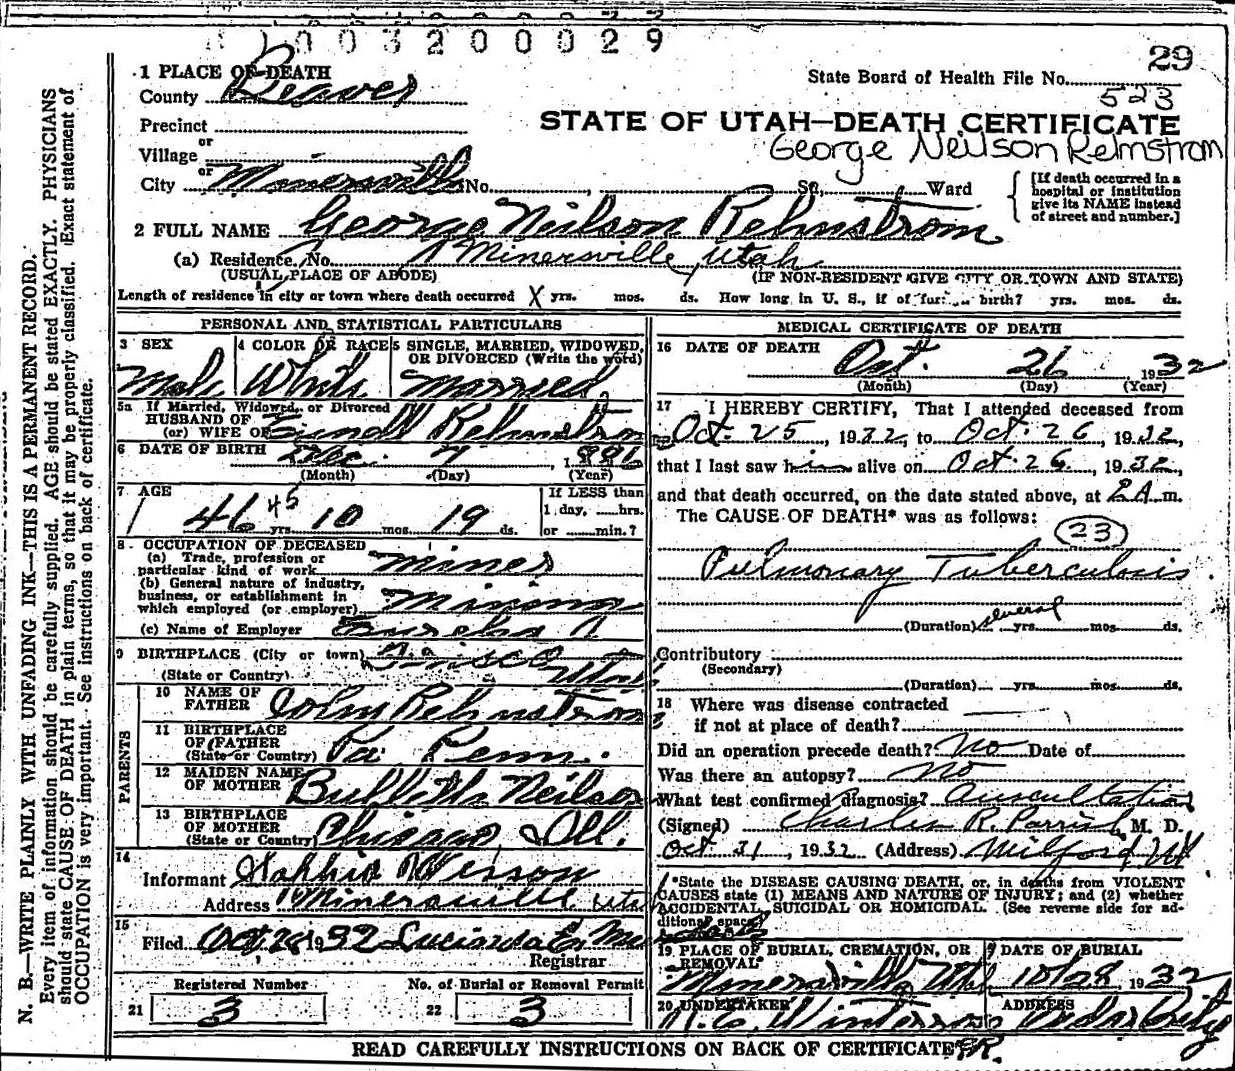 1003200029
29
1 PLACE OF DEATH
State Board of Health File No.
County Beaver
523
Precinct
STATE OF UTAH—DEATH CERTIFICATE
or
George Neilson Relmstrom
Village
or
City Minersville No. St., Ward
[If death occurred in a
hospital or institution
give its NAME instead
of street and number.]
2 FULL NAME George Neilson Relmstrom
(a) Residence, No. Minersville, Utah
(USUAL PLACE OF ABODE) (IF NON-RESIDENT GIVE CITY OR TOWN AND STATE)
Length of residence in city or town where death occurred X yrs. mos. ds. How long in U. S., if of birth? yrs. mos. ds.
PERSONAL AND STATISTICAL PARTICULARS
3 SEX
Male
4 COLOR OR RACE
White
5 SINGLE, MARRIED, WIDOWED,
OR DIVORCED (Write the word)
Married
5a If Married, Widowed, or Divorced
HUSBAND OF
(or) WIFE OF Relmstrom
6 DATE OF BIRTH Dec. 7, 1886
(Month) (Day) (Year)
7 AGE
46 45 yrs. 10 mos. 19 ds.
If LESS than
1 day, hrs.
or min.?
8. OCCUPATION OF DECEASED
(a) Trade, profession or
particular kind of work Miner
(b) General nature of industry,
business, or establishment in
which employed (or employer) Mining
(c) Name of Employer
9 BIRTHPLACE (City or town) Frisco
(State or Country) Utah
PARENTS
10 NAME OF
FATHER John Relmstrom
11 BIRTHPLACE
OF FATHER
(State or Country) Pa Penn.
12 MAIDEN NAME
OF MOTHER Neilson
13 BIRTHPLACE
OF MOTHER
(State or Country) Chicago Ill.
14
Informant
Address Minersville Utah
15
Filed Oct. 28 1932 Lucinda E.
Registrar
Registered Number
21 3
No. of Burial or Removal Permit
22 3
MEDICAL CERTIFICATE OF DEATH
16 DATE OF DEATH Oct. 26 1932
(Month) (Day) (Year)
17 I HEREBY CERTIFY, That I attended deceased from
Oct. 25, 1932, to Oct. 26, 1932,
that I last saw him alive on Oct. 26, 1932,
and that death occurred, on the date stated above, at 2 A m.
The CAUSE OF DEATH* was as follows:
23
Pulmonary Tuberculosis
(Duration) several yrs. mos. ds.
Contributory
(Secondary)
(Duration) yrs. mos. ds.
18 Where was disease contracted
if not at place of death?
Did an operation precede death? No Date of
Was there an autopsy? No
What test confirmed diagnosis? Auscultation
(Signed) Charles R. Parrish, M. D.
Oct 31, 1932 (Address) Milford Ut
*State the DISEASE CAUSING DEATH, or, in deaths from VIOLENT
CAUSES state (1) MEANS AND NATURE OF INJURY; and (2) whether
ACCIDENTAL, SUICIDAL OR HOMICIDAL. (See reverse side for ad-
ditional space)
19 PLACE OF BURIAL, CREMATION, OR
REMOVAL
Minersville, Utah
DATE OF BURIAL
10/28 1932
20 UNDERTAKER
ADDRESS
Cedar City
READ CAREFULLY INSTRUCTIONS ON BACK OF CERTIFICATE
N. B.—WRITE PLAINLY WITH UNFADING INK—THIS IS A PERMANENT RECORD.
Every item of information should be carefully supplied. AGE should be stated EXACTLY. PHYSICIANS
should state CAUSE OF DEATH in plain terms, so that it may be properly classified. Exact statement of
OCCUPATION is very important. See instructions on back of certificate.